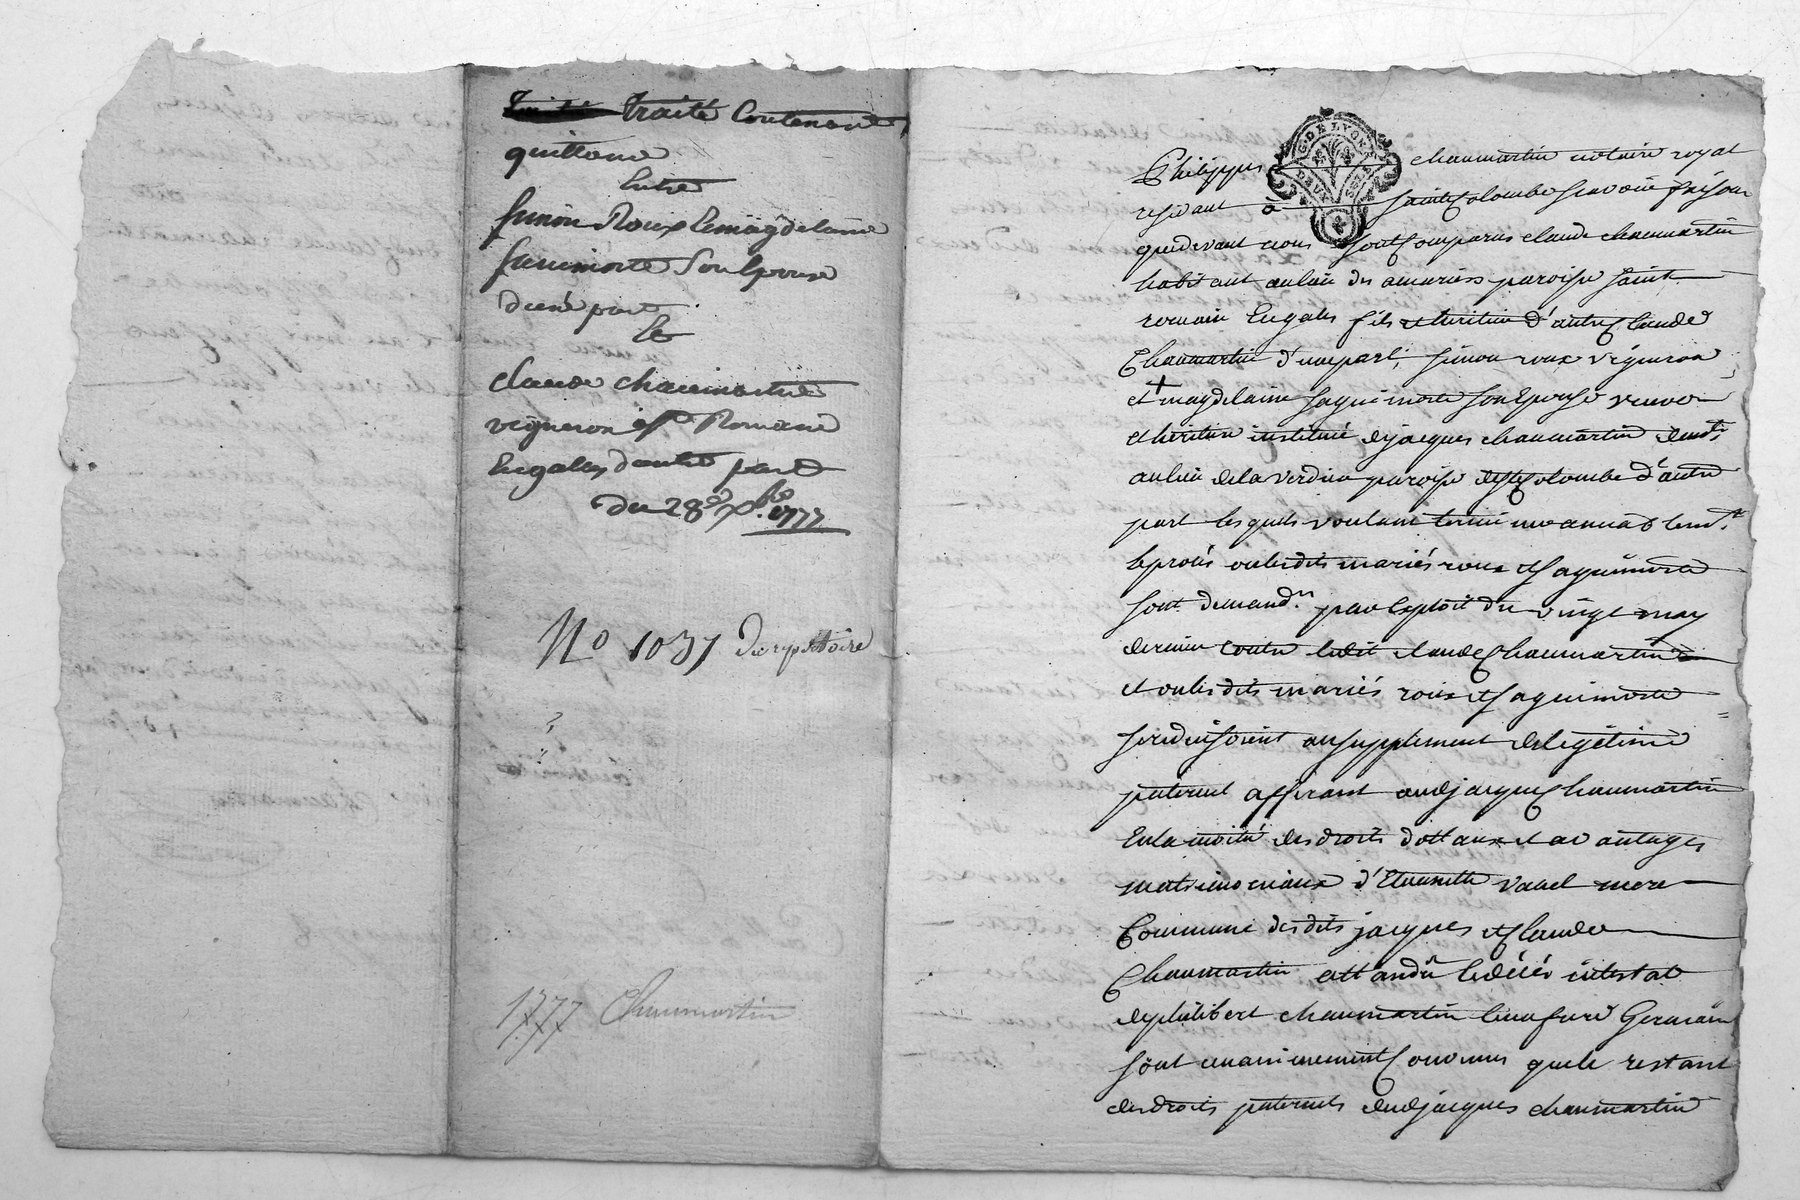 traité Contenant
quittance
Entre
Simon Roux et magdelaine
faurimorte Son Epouse
d'une part
Et
claude chaumartin
vigneron a St Romain
En galles d'autre part
du 28e Xbre 1777
No 1037 Du repertoire
1777 Chaumartin
G. DE LYON
DEUX SOLS
Philippes chaumartin notaire royal
residant à Sainte Colombe Scavoir faisons
que devant nous sont Comparus claude chaumartin
habitant au lieu des paroisse Saint
romain En gales fils et heritier d'autre Claude
Chaumartin d'une part, Simon roux vigneron
et magdelaine faguimorte son Epouse veuve
et heritiere instituée de jacques chaumartin demt
au lieu de la verdier paroisse de Ste Colombe d'autre
part lesquels voulant terminer
le procès ou lesdits mariés roux et faguimorte
sont demandrs par Exploit du vingt may
dernier contre ledit claude Chaumartin
et ou lesdits mariés roux et faguimorte
au supplement de legitime
paternel afferant aud jacques Chaumartin
En la moitié des droits dottaux et avantages
matrimoniaux d'Etiennette vanel mere
Commune desdits jacques et Claude
Chaumartin attandu le décés intestat
de philibert chaumartin leur frere Germain
sont unanimement Convenus que le restant
des droits paternels dud jacques chaumartin